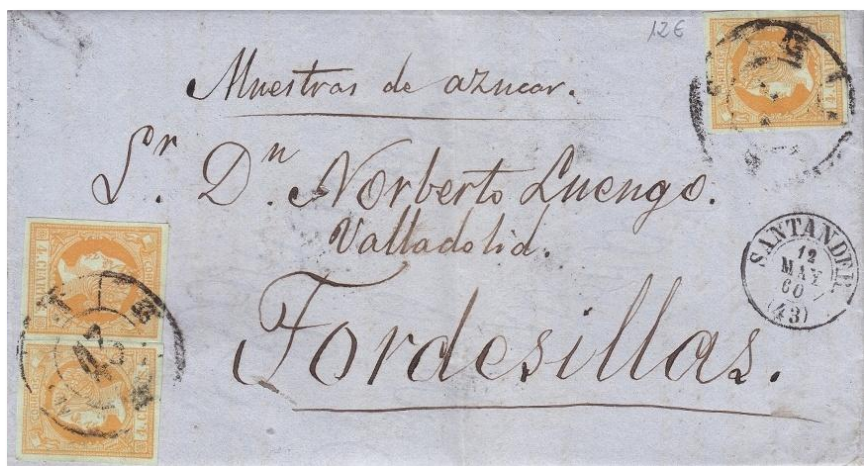 12€
Muestras de azucar.
Sr. Dn. Norberto Luengo.
Valladolid.
Tordesillas.
SANTANDER
12
MAY
60
(43)